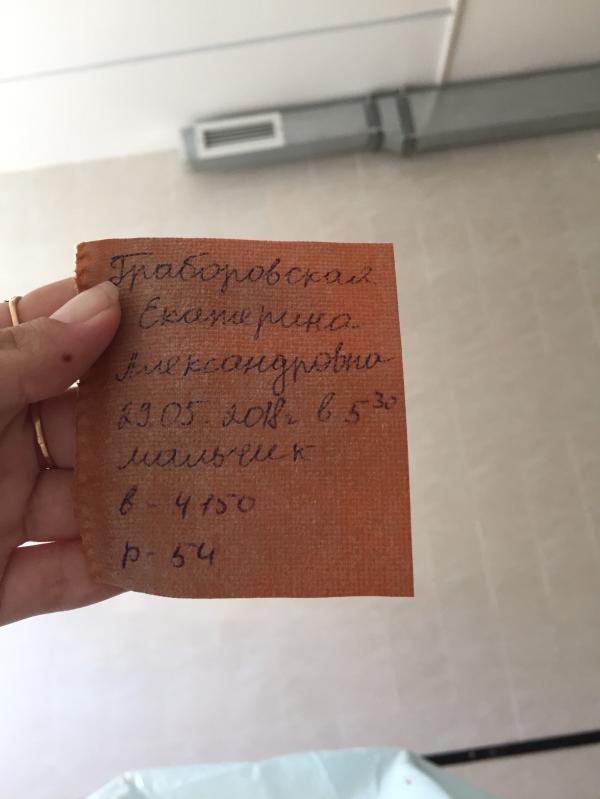 Траборовская
Екатерина
Александровна
29.05.2018г. в 5³⁰
мальчик
в - 4150
р - 54